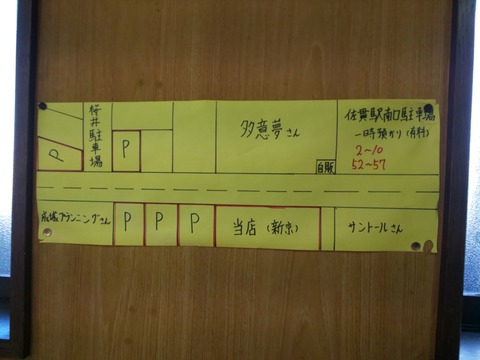 桜井駐車場
P
P
多意夢さん
自販
佐貫駅南口駐車場
一時預かり(有料)
2～10
52～57
プランニングさん
P
P
P
当店(新京)
サントールさん